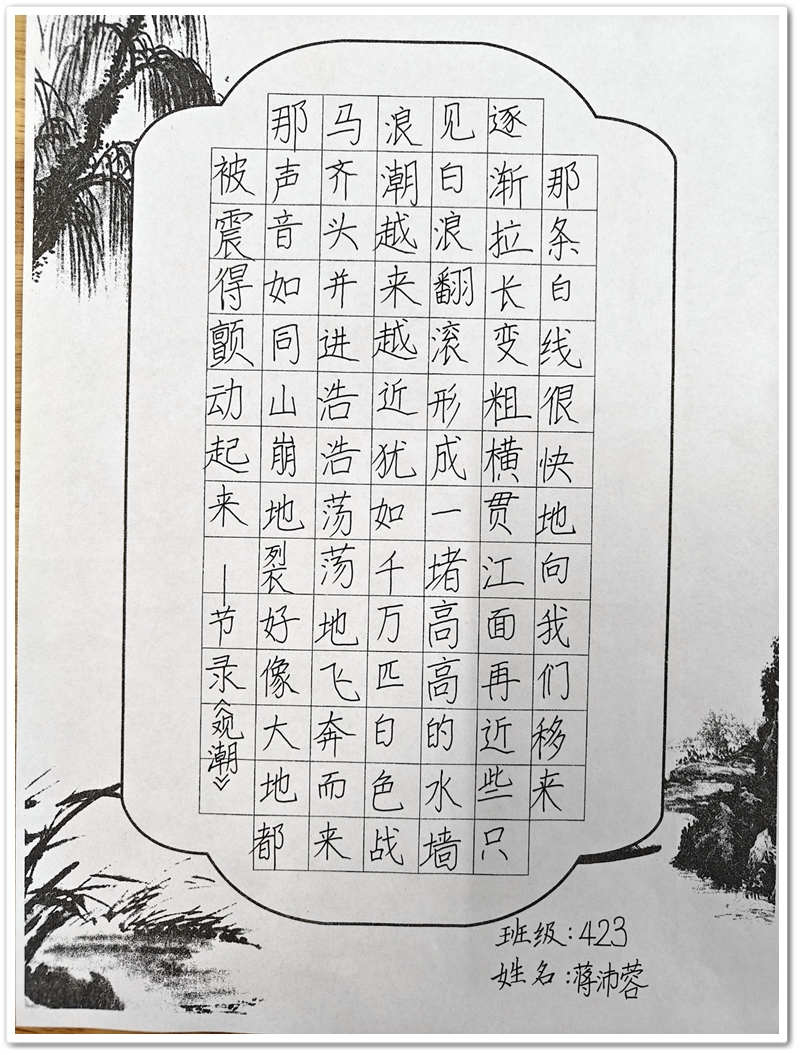 那条白线很快地向我们移来
逐渐拉长变粗横贯江面再近些只
见白浪翻滚形成一堵高高的水墙
浪潮越来越近犹如千万匹白色战
马齐头并进浩浩荡荡地飞奔而来
那声音如同山崩地裂好像大地都
被震得颤动起来—节录《观潮》
班级:423
姓名:蒋沛蓉